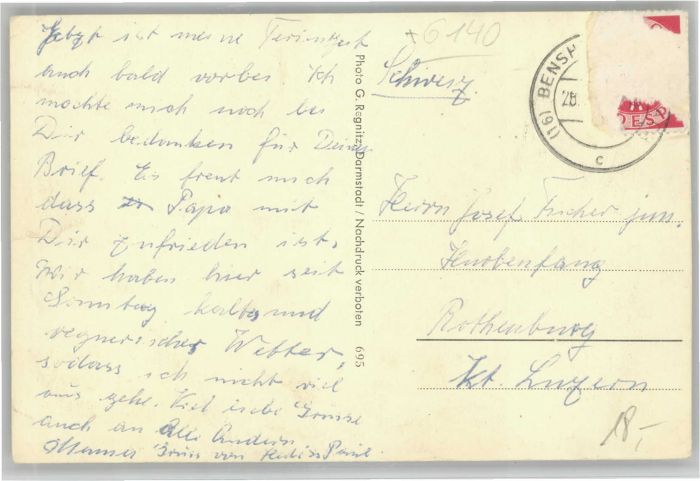 Jetzt ist meine Ferienzeit
auch bald vorbei Ich
möchte mich noch bei
Dir bedanken für Deinen
Brief. Es freut mich
dass Papa mit
Dir zufrieden ist.
Wir haben hier seit
Sonntag kaltes und
regnerisches Wetter,
sodass ich nicht viel
aus gehe. Viel liebe Grüsse
auch an alle Andern
Gruss von
Photo G. Regnitz, Darmstadt / Nachdruck verboten 695
+6140
Schweiz
(16) BENSH
28.
c
Herrn Josef Fischer jun.
Knubenfang
Rothenburg
Kt Luzern
18,-